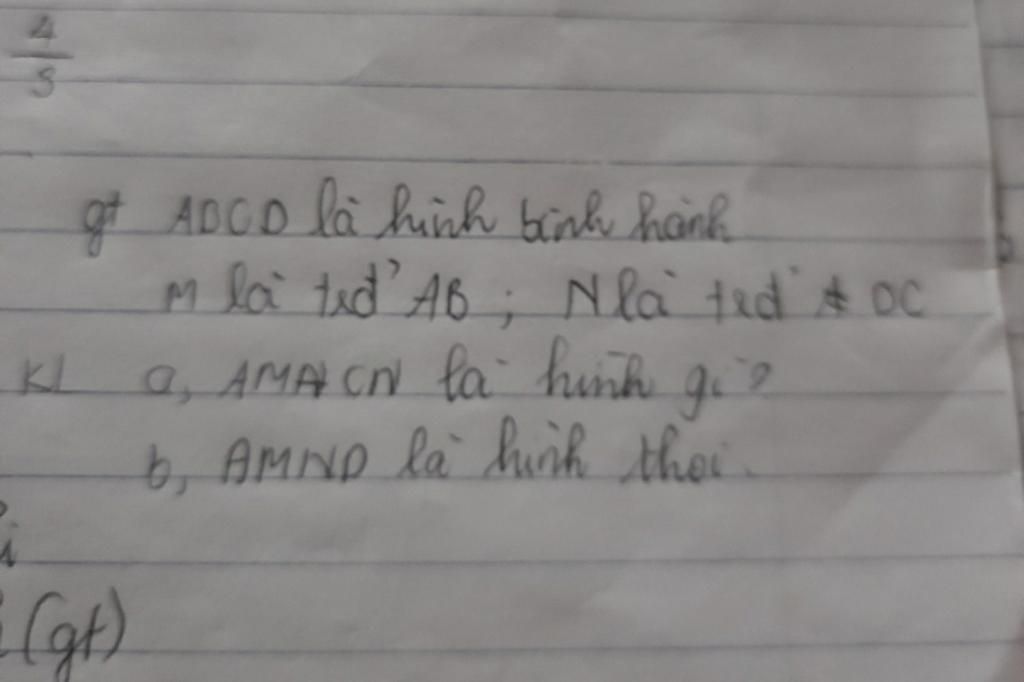 4
5
gt ABCD là hình bình hành
M là tđ' AB ; N là tđ' DC
Kl a, AMCN là hình gì?
b, AMND là hình thoi.
i
i (gt)